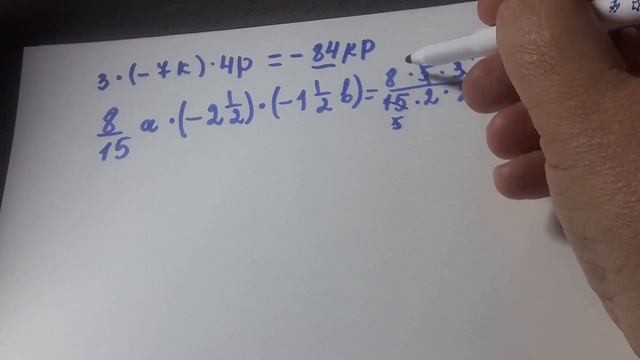 3 · (-7k) · 4p = -84kp
8/15 a · (-2 1/2) · (-1 1/2 b) = 8 · 5 · 3 / 15 · 2 ·
5